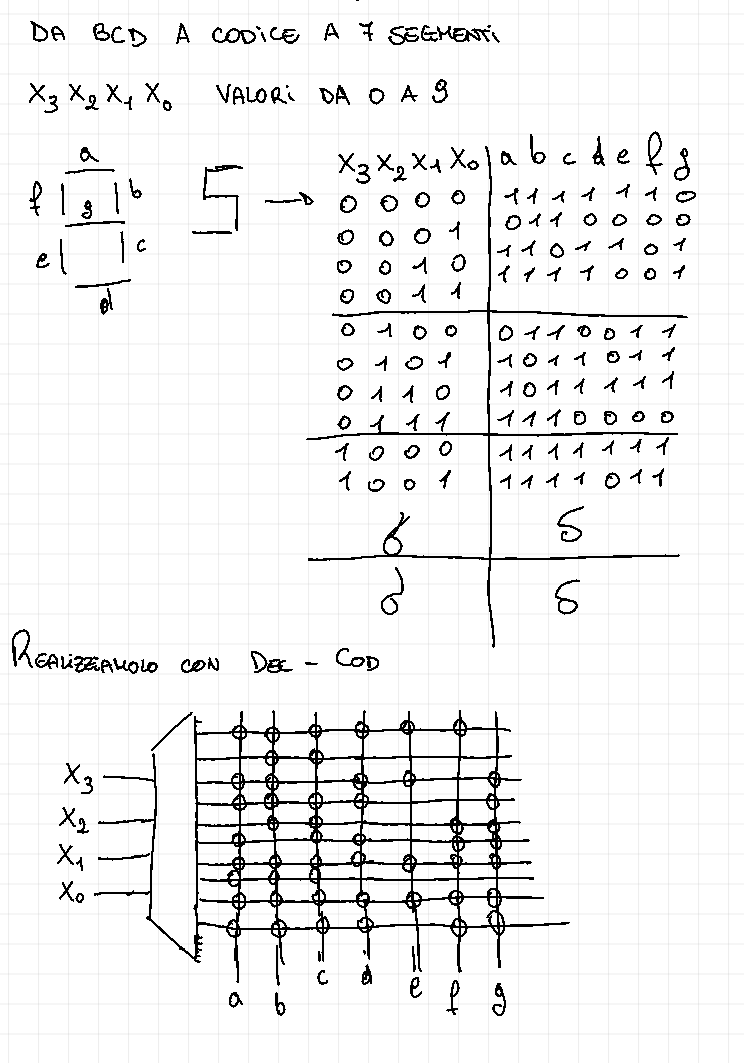 DA BCD A CODICE A 7 SEGMENTI
X3 X2 X1 X0 VALORI DA 0 A 9
a
f g b
e c
d
5 →
X3 X2 X1 X0 | a b c d e f g
0 0 0 0 | 1 1 1 1 1 1 0
0 0 0 1 | 0 1 1 0 0 0 0
0 0 1 0 | 1 1 0 1 1 0 1
0 0 1 1 | 1 1 1 1 0 0 1
0 1 0 0 | 0 1 1 0 0 1 1
0 1 0 1 | 1 0 1 1 0 1 1
0 1 1 0 | 1 0 1 1 1 1 1
0 1 1 1 | 1 1 1 0 0 0 0
1 0 0 0 | 1 1 1 1 1 1 1
1 0 0 1 | 1 1 1 1 0 1 1
REALIZZIAMOLO CON DEC - COD
X3
X2
X1
X0
a b c d e f g